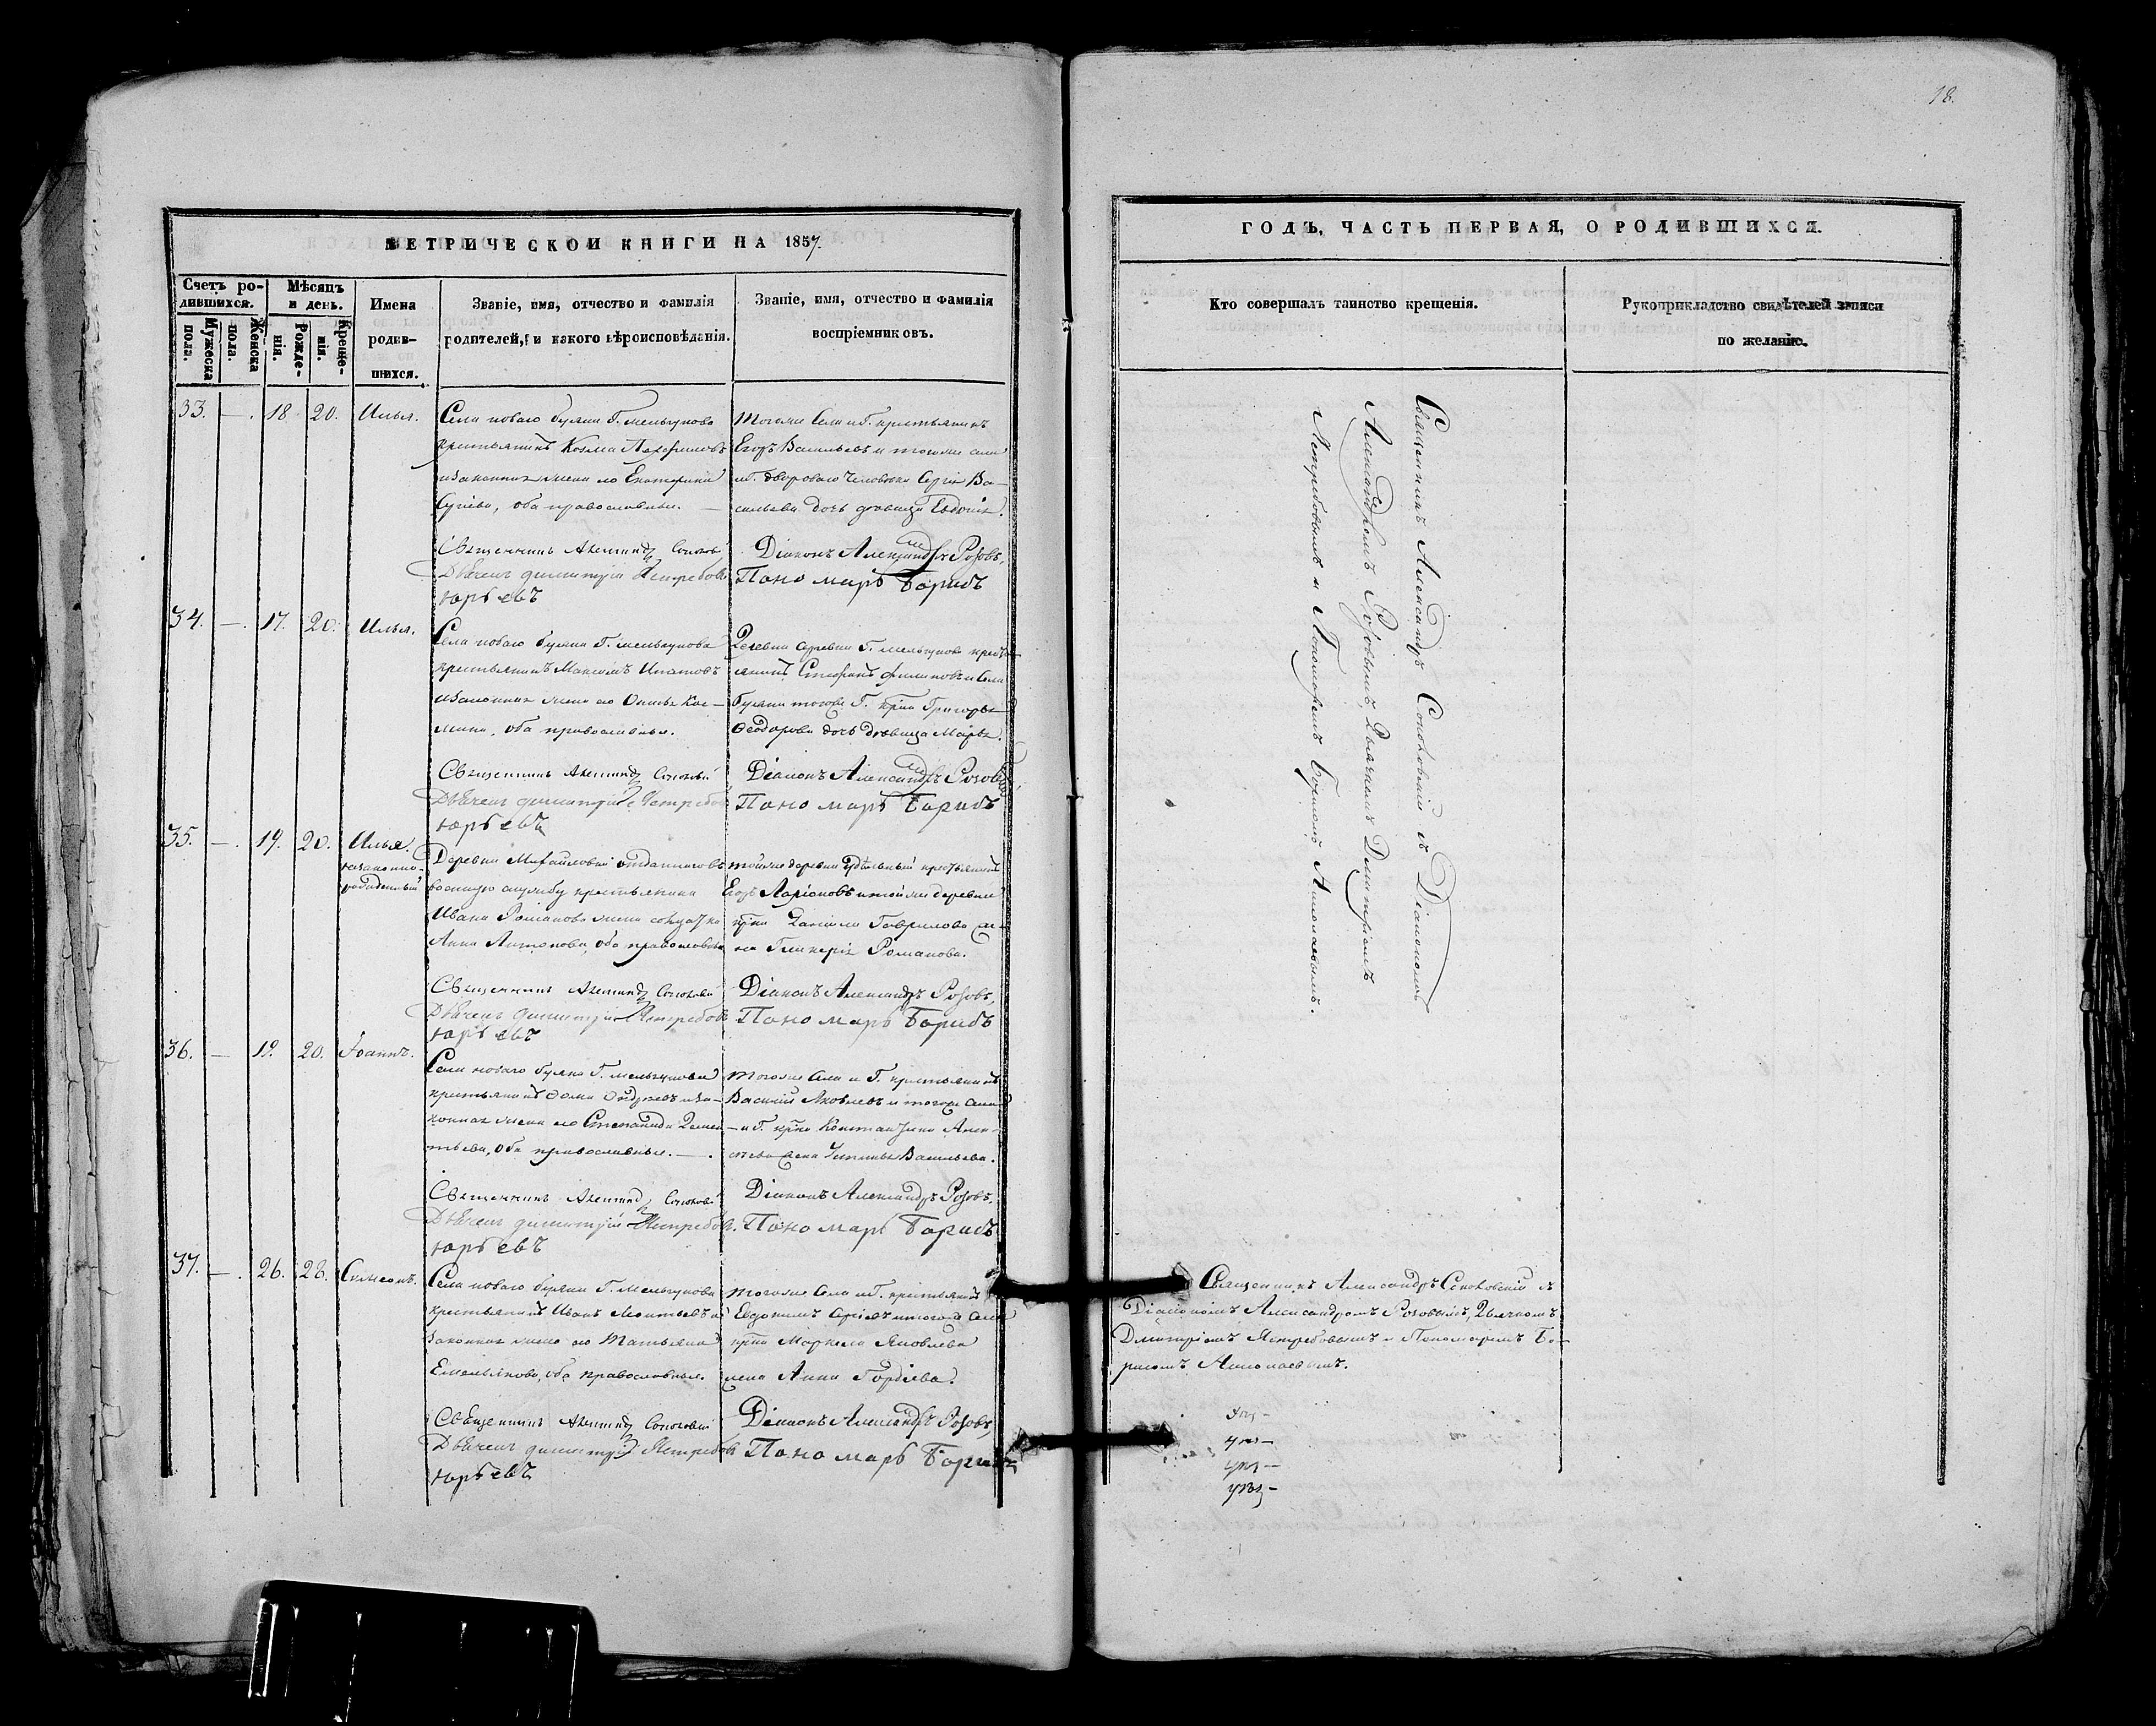 18.
МЕТРИЧЕСКОЙ КНИГИ НА 1857.
Счетъ ро-
дившихся.
Мужеска
пола.
Женска
пола.
Мѣсяцъ
и день.
Рожде-
нія.
Креще-
нія.
Имена
родив-
шихся.
Званіе, имя, отчество и фамилія
родителей, и какого вѣроисповѣданія.
Званіе, имя, отчество и фамилія
воспріемниковъ.
33. — 18 20. Илья.
Села новаго буяна Г. мельгунова
крестьянинъ Козма
и законная жена его Екатерина
оба православные.
Тогоже села и Г. крестьянинъ
Егоръ Васильевъ и тогоже села
и Г. двороваго человѣка Сергія Ва-
сильева дочь дѣвица Евдокія.
Священникъ
Діаконъ Александръ Розовъ,
Дьячекъ Димитрій Ястребовъ
Пономарь Борисъ
юрьевъ
34. — 17. 20. Илья.
Села новаго буяна Г. мельгунова
крестьянинъ Максимъ Ипатовъ
и законная жена его Кос-
мина, оба православные.
Деревни Г. мельгунова кресть-
янинъ Стефанъ Филиповъ и села
буяна тогоже Г. крна Григорья
Ѳеодорова дочь дѣвица Марья.
Священникъ
Діаконъ Александръ Розовъ
Дьячекъ Димитрій Ястребовъ
Пономарь Борисъ
юрьевъ
35. — 19. 20. Илья.
незаконно-
рожденный
Деревни Михайловки отданнаго въ
военную службу крестьянина
Ивана Романова жена солдатка
Анна Антонова, оба православные
тойже деревни удѣльный крестьянинъ
Егоръ Ларіоновъ и тойже деревни
крна Даніила Гаврилова же-
на Гликерія Романова.
Священникъ
Діаконъ Александръ Розовъ,
Дьячекъ Димитрій Ястребовъ
Пономарь Борисъ
юрьевъ
36. — 19. 20. Іоаннъ.
Села новаго буяна Г. мельгунова
крестьянинъ Ѳома и за-
конная жена его Степанида Демен-
тьева, оба православные.
Тогоже села и Г. крестьянинъ
Василій Яковлевъ и тогоже села
и Г. крна Константина Алек-
сѣева жена Татьяна Васильева.
Священникъ
Діаконъ Александръ Розовъ.
Дьячекъ Димитрій Ястребовъ.
Пономарь Борисъ
юрьевъ
37. — 26. 28. Симеонъ.
Села новаго буяна Г. Мельгунова
крестьянинъ Иванъ Леонтьевъ и
законная жена его Татьяна
Емельянова, оба православные.
Тогоже села и Г. крестьянинъ
Евдокимъ Сергіевъ и тогоже села
крна Маркела Яковлева
жена Анна Гордіева.
Священникъ
Діаконъ Александръ Розовъ,
Дьячекъ Димитрій Ястребовъ
Пономарь Борисъ
юрьевъ
ГОДЪ, ЧАСТЬ ПЕРВАЯ, О РОДИВШИХСЯ.
Кто совершалъ таинство крещенія.
Рукоприкладство свидѣтелей записи
по желанію.
Священникъ Александръ Соколовскій съ Діакономъ
Александромъ Розовымъ, Дьячкомъ Димитріемъ
Ястребовымъ и Пономаремъ Борисомъ
Священникъ Александръ Соколовскій съ
Діакономъ Александромъ Розовымъ, Дьячкомъ
Димитріемъ Ястребовымъ и Пономаремъ Бо-
рисомъ